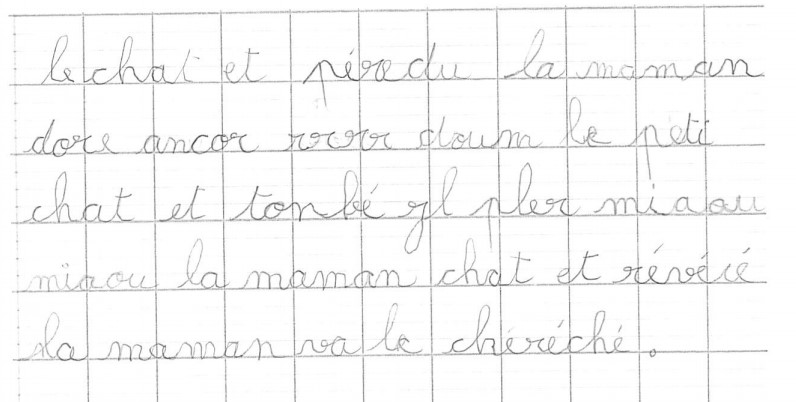 le chat et péredu la maman
dore ancor rrorr doum le petit
chat et tonbé yl pler miaou
miaou la maman chat et révéié
la maman va le chéréché.